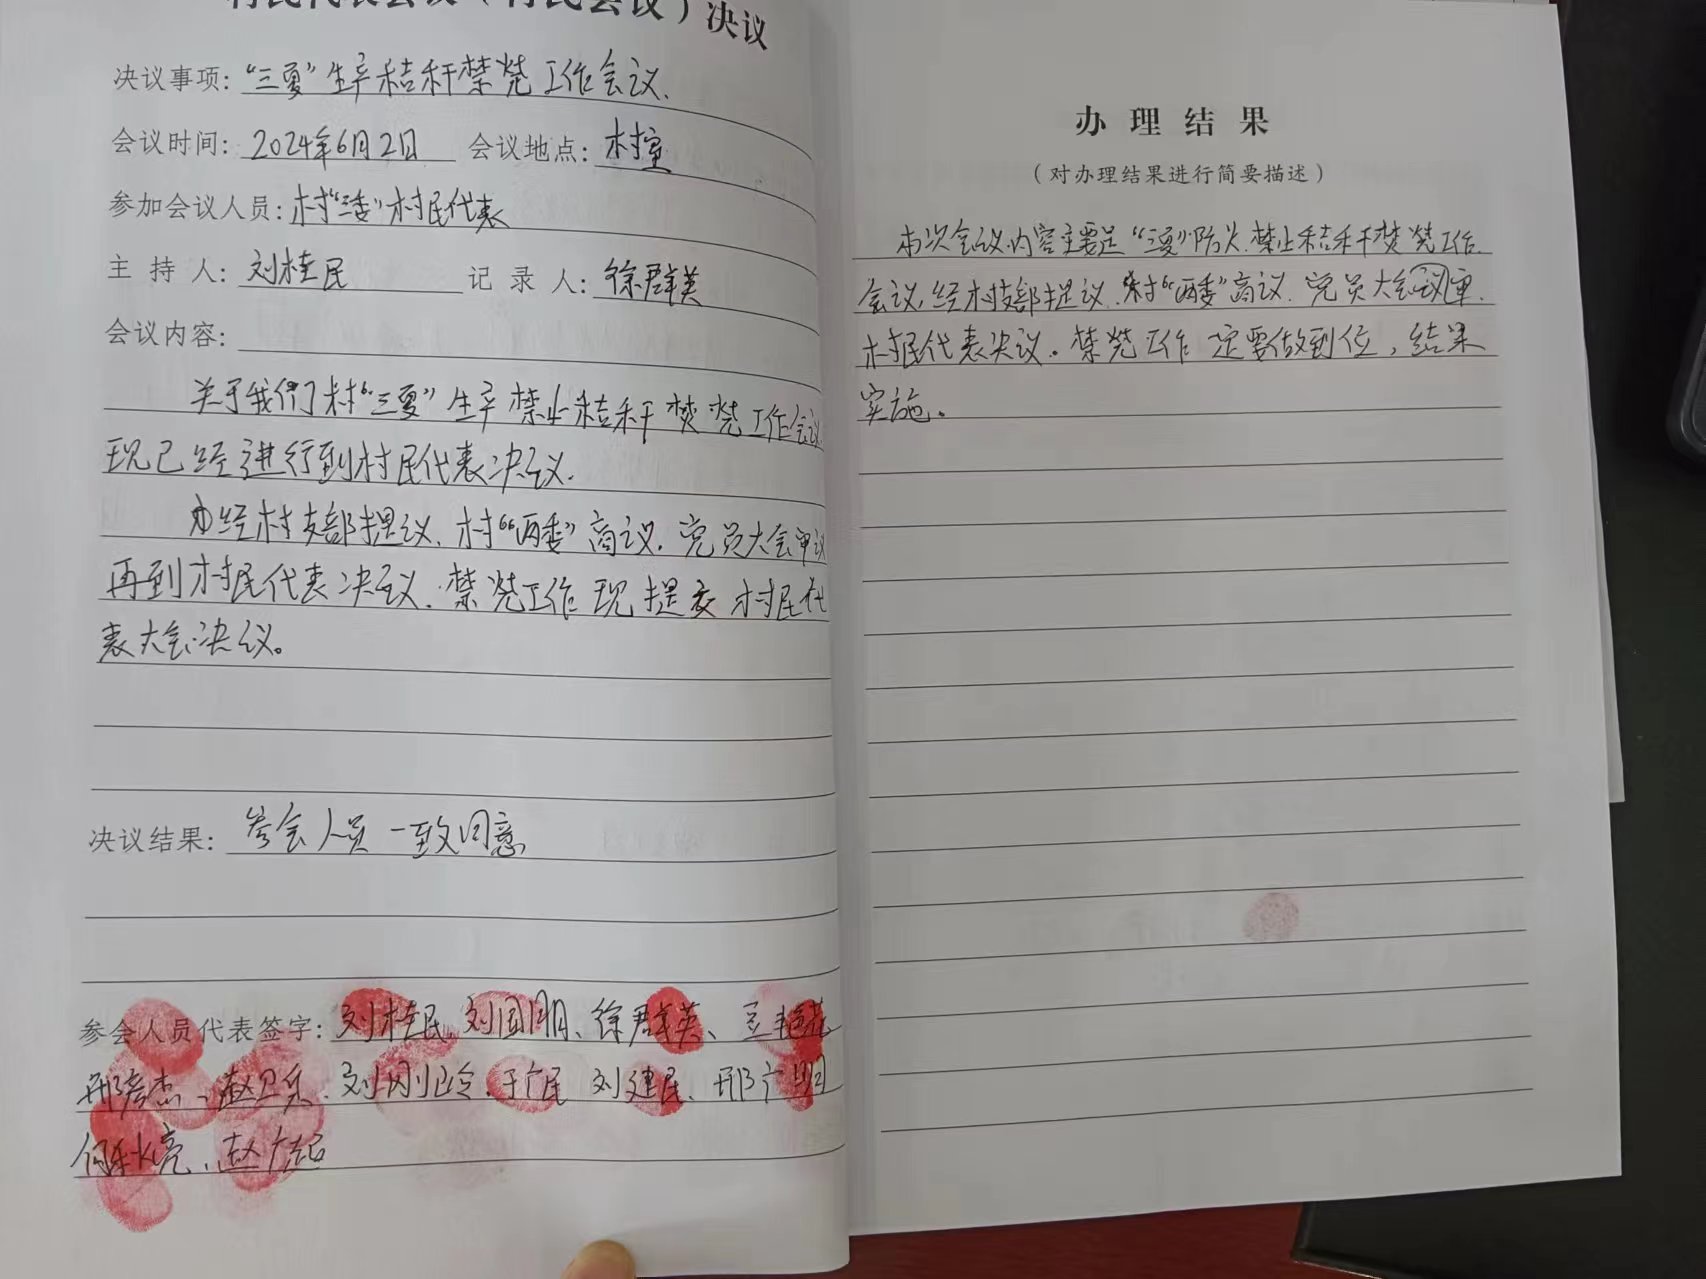 村民代表会议（村民会议）决议
决议事项：“三夏”生产秸秆禁焚工作会议.
会议时间：2024年6月2日 会议地点：村室
参加会议人员：村“三委”村民代表
主持人：刘桂民 记录人：徐群英
会议内容：
关于我们村“三夏”生产禁止秸秆焚焚工作会议
现已经进行到村民代表决议.
经村支部提议.村“两委”商议.党员大会审议
再到村民代表决议.禁焚工作现提交村民代
表大会决议。
决议结果：参会人员一致同意
参会人员代表签字：刘桂民.刘国明、徐群英、豆艳花
邢彦杰、赵卫兵.刘刚 于个民 刘建民.邢广明
何永亮、赵广超
办理结果
（对办理结果进行简要描述）
本次会议内容主要是“三夏”防火.禁止秸秆焚焚工作.
会议,经村支部提议.村“两委”商议.党员大会议审.
村民代表决议。禁焚工作一定要做到位，结果
实施。